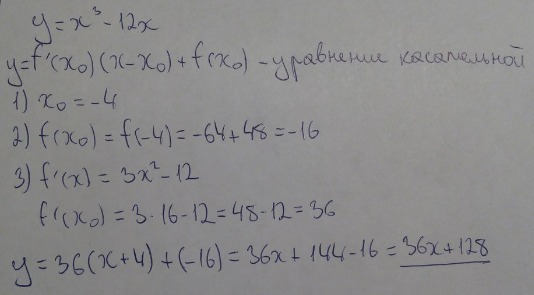 y = x³ - 12x
y = f'(x₀)(x - x₀) + f(x₀) - уравнение касательной
1) x₀ = -4
2) f(x₀) = f(-4) = -64 + 48 = -16
3) f'(x) = 3x² - 12
f'(x₀) = 3 · 16 - 12 = 48 - 12 = 36
y = 36(x + 4) + (-16) = 36x + 144 - 16 = 36x + 128